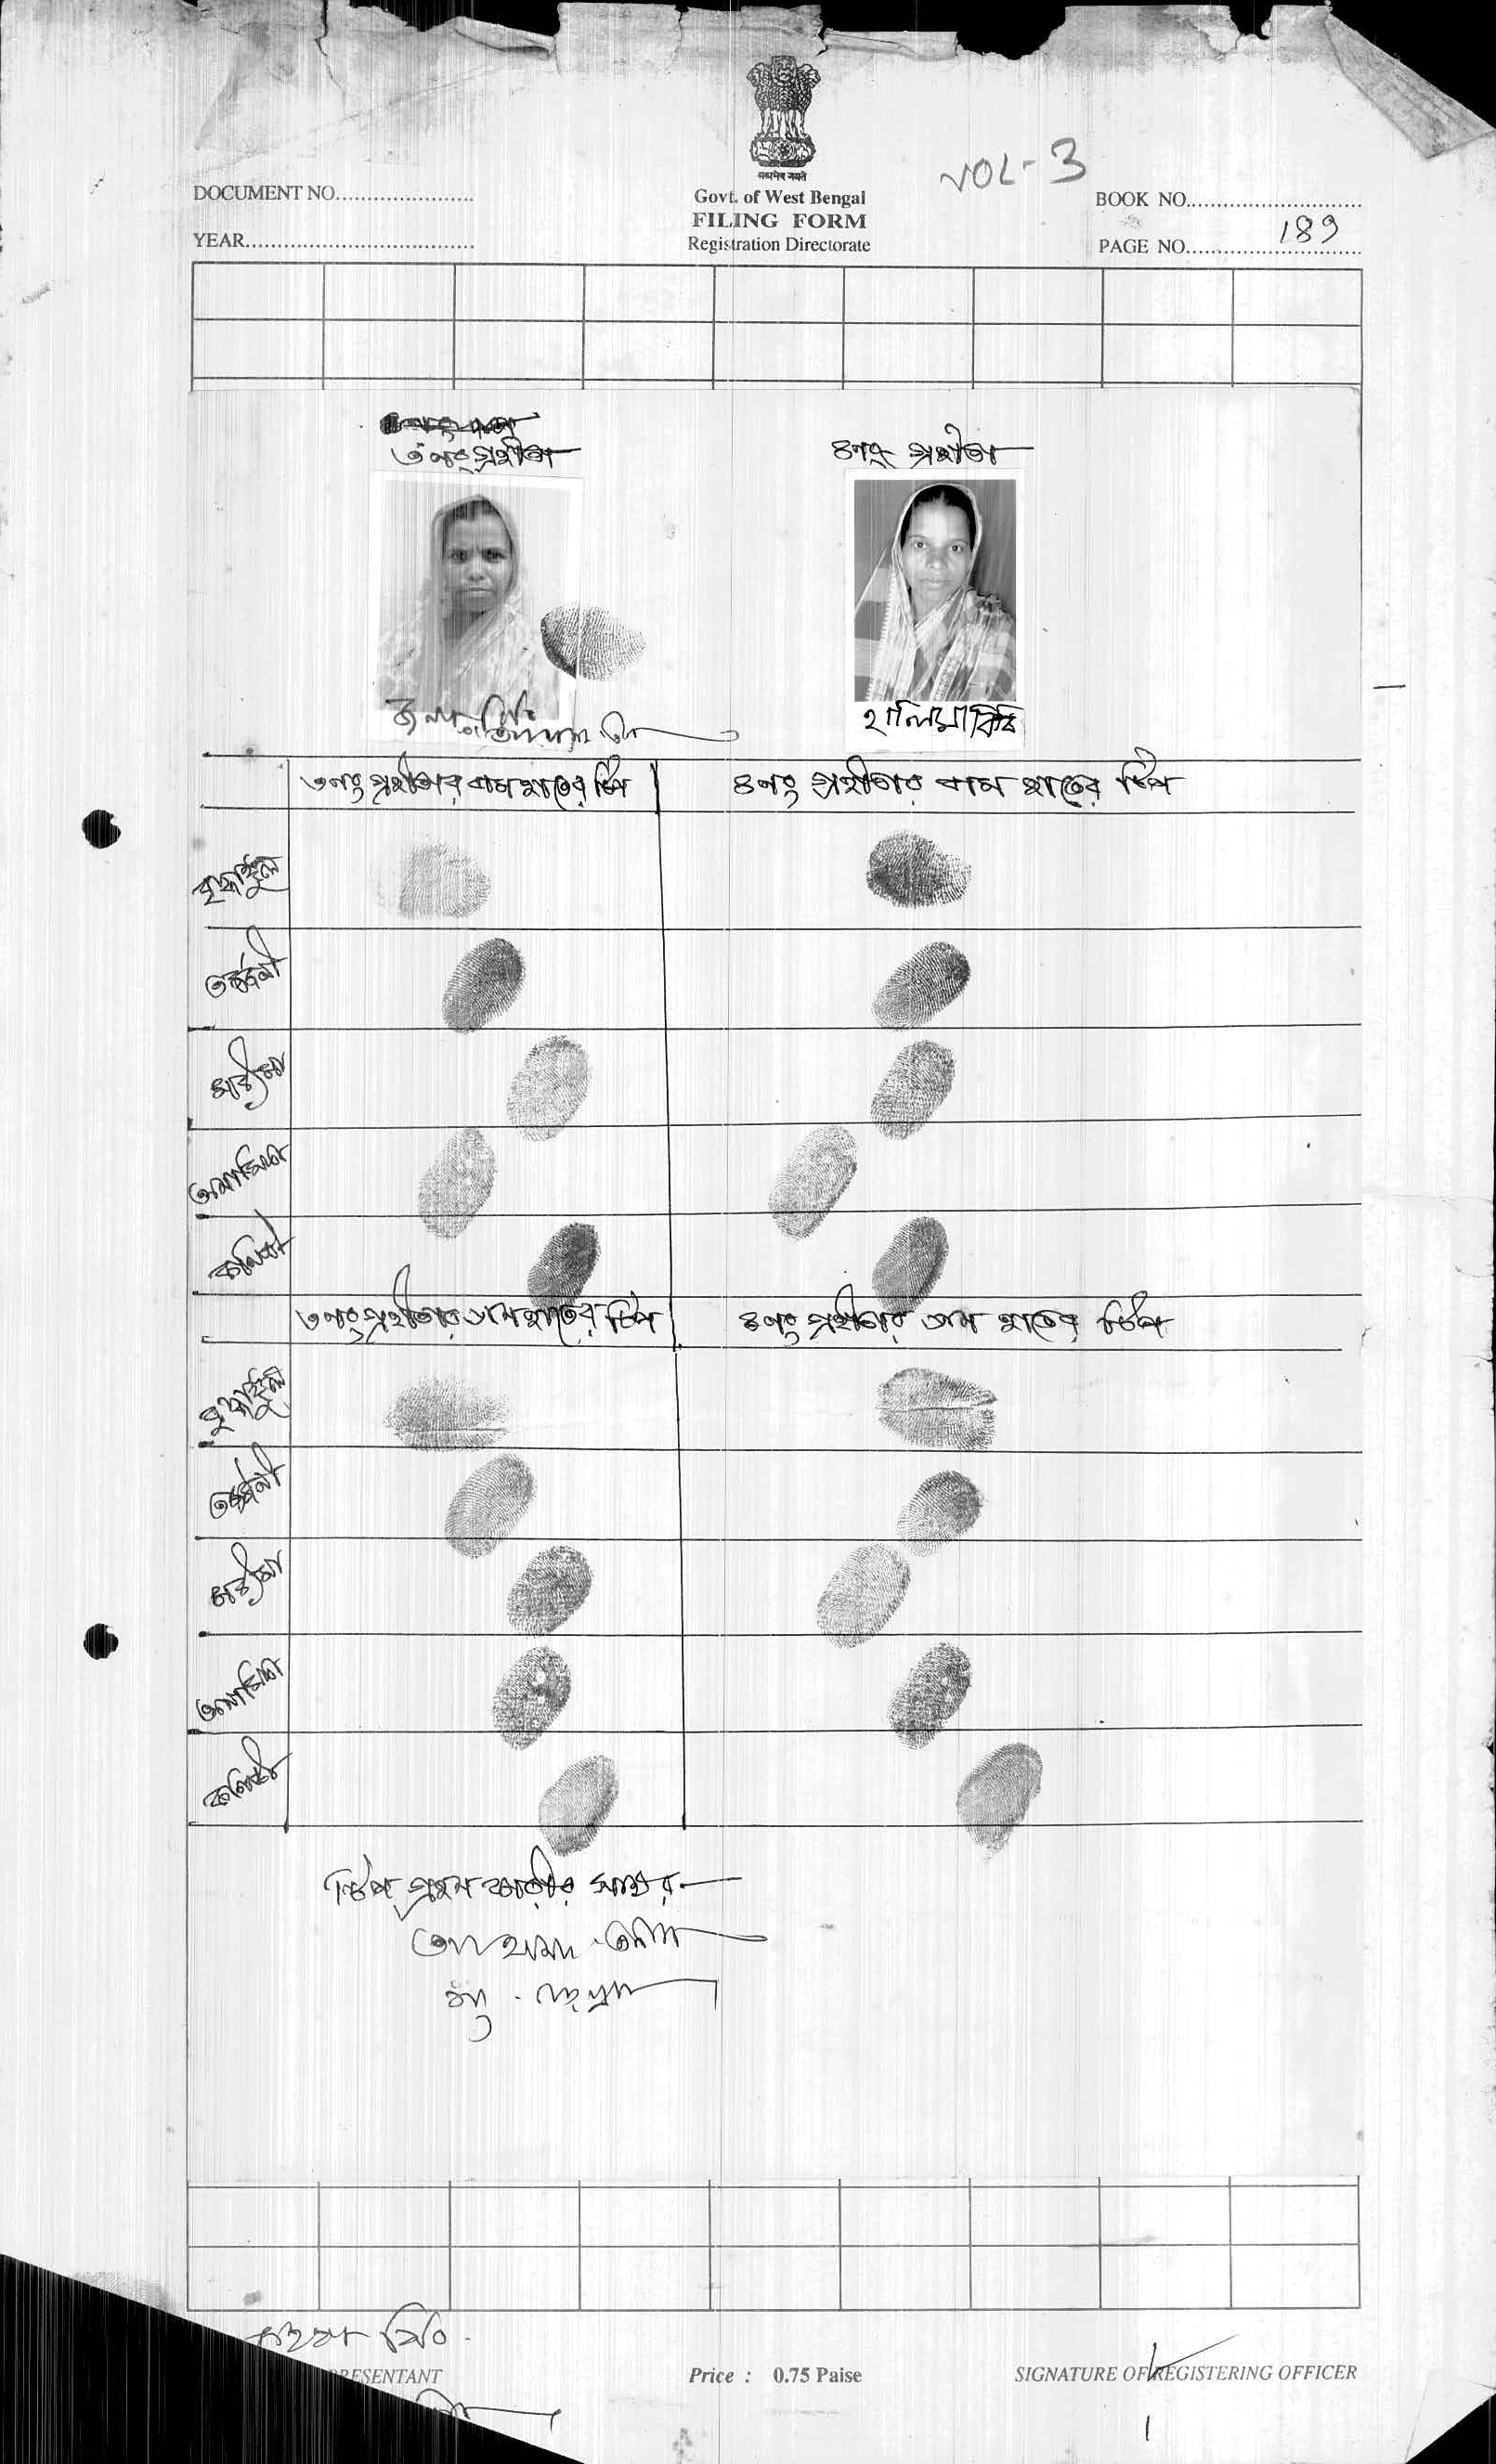 सत्यमेव जयते
VOL-3
DOCUMENT NO.
Govt. of West Bengal
BOOK NO.
FILING FORM
YEAR
Registration Directorate
PAGE NO. 189
৩নং গ্রহীতা
৪নং গ্রহীতা
বিবি
হালিমা বিবি
৩নং গ্রহীতার বাম হাতের টিপ
৪নং গ্রহীতার বাম হাতের টিপ
বৃদ্ধাঙ্গুল
তর্জ্জনী
মধ্যমা
অনামিকা
কনিষ্ঠা
৩নং গ্রহীতার ডান হাতের টিপ
৪নং গ্রহীতার ডান হাতের টিপ
বৃদ্ধাঙ্গুল
তর্জ্জনী
মধ্যমা
অনামিকা
কনিষ্ঠা
টিপ গ্রহন কারীর সাক্ষর
বিবি
PRESENTANT
Price : 0.75 Paise
SIGNATURE OF REGISTERING OFFICER